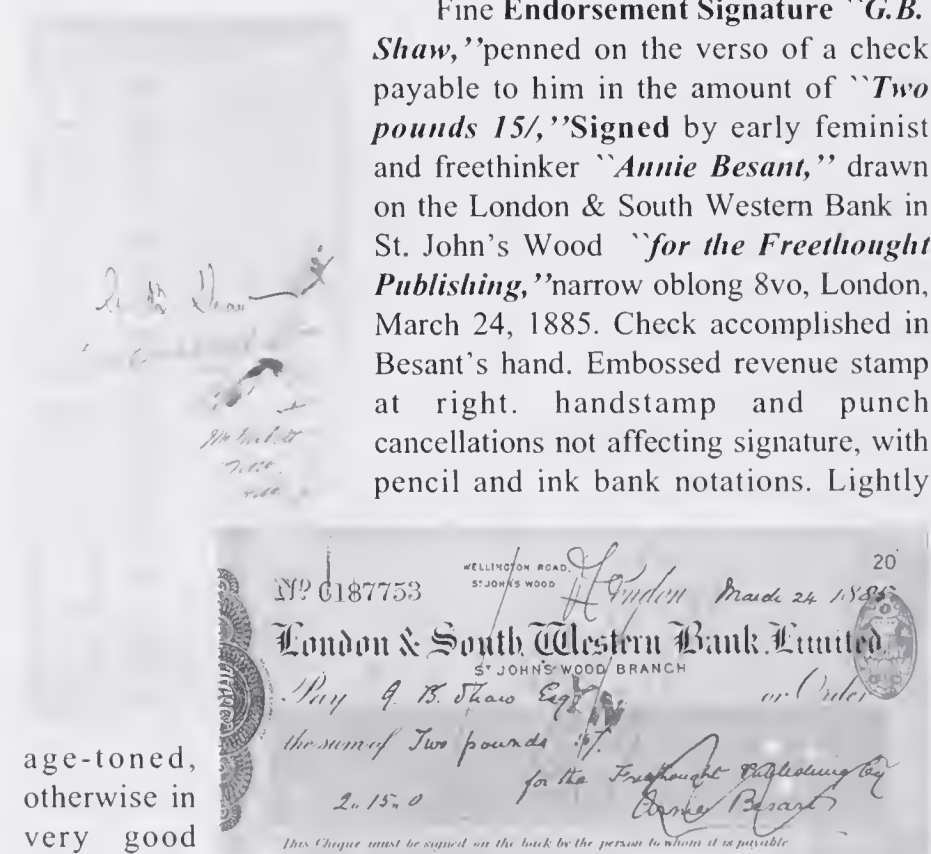 Fine Endorsement Signature ``G.B.
Shaw,''penned on the verso of a check
payable to him in the amount of ``Two
pounds 15/,''Signed by early feminist
and freethinker ``Annie Besant,'' drawn
on the London & South Western Bank in
St. John's Wood ``for the Freethought
Publishing,''narrow oblong 8vo, London,
March 24, 1885. Check accomplished in
Besant's hand. Embossed revenue stamp
at right. handstamp and punch
cancellations not affecting signature, with
pencil and ink bank notations. Lightly
age-toned,
otherwise in
very good
G. B. Shaw
20
WELLINGTON ROAD,
ST JOHN'S WOOD
Nº 0187753
London March 24 1885
London & South Western Bank. Limited
ST JOHN'S WOOD BRANCH
Pay G. B. Shaw Esqr or Order
the sum of Two pounds 15/.
for the Freethought Publishing Cy
2.. 15.. 0
Annie Besant
This Cheque must be signed on the back by the person to whom it is payable